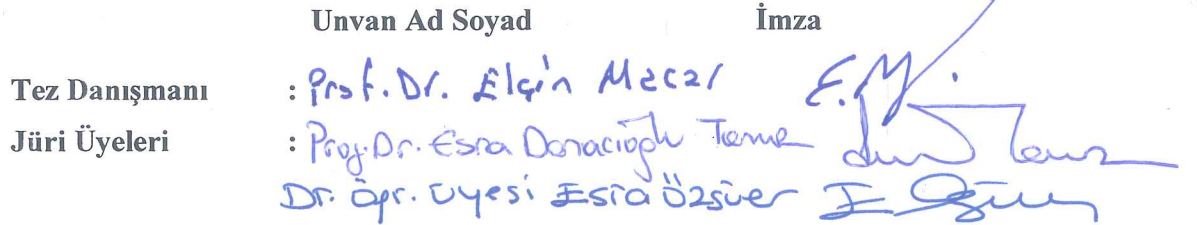 Unvan Ad Soyad İmza
Tez Danışmanı : Prof. Dr. Elçin Macar E.M.
Jüri Üyeleri : Prof. Dr. Esra Danacıoğlu
Dr. Öğr. Üyesi Esra Özsüer